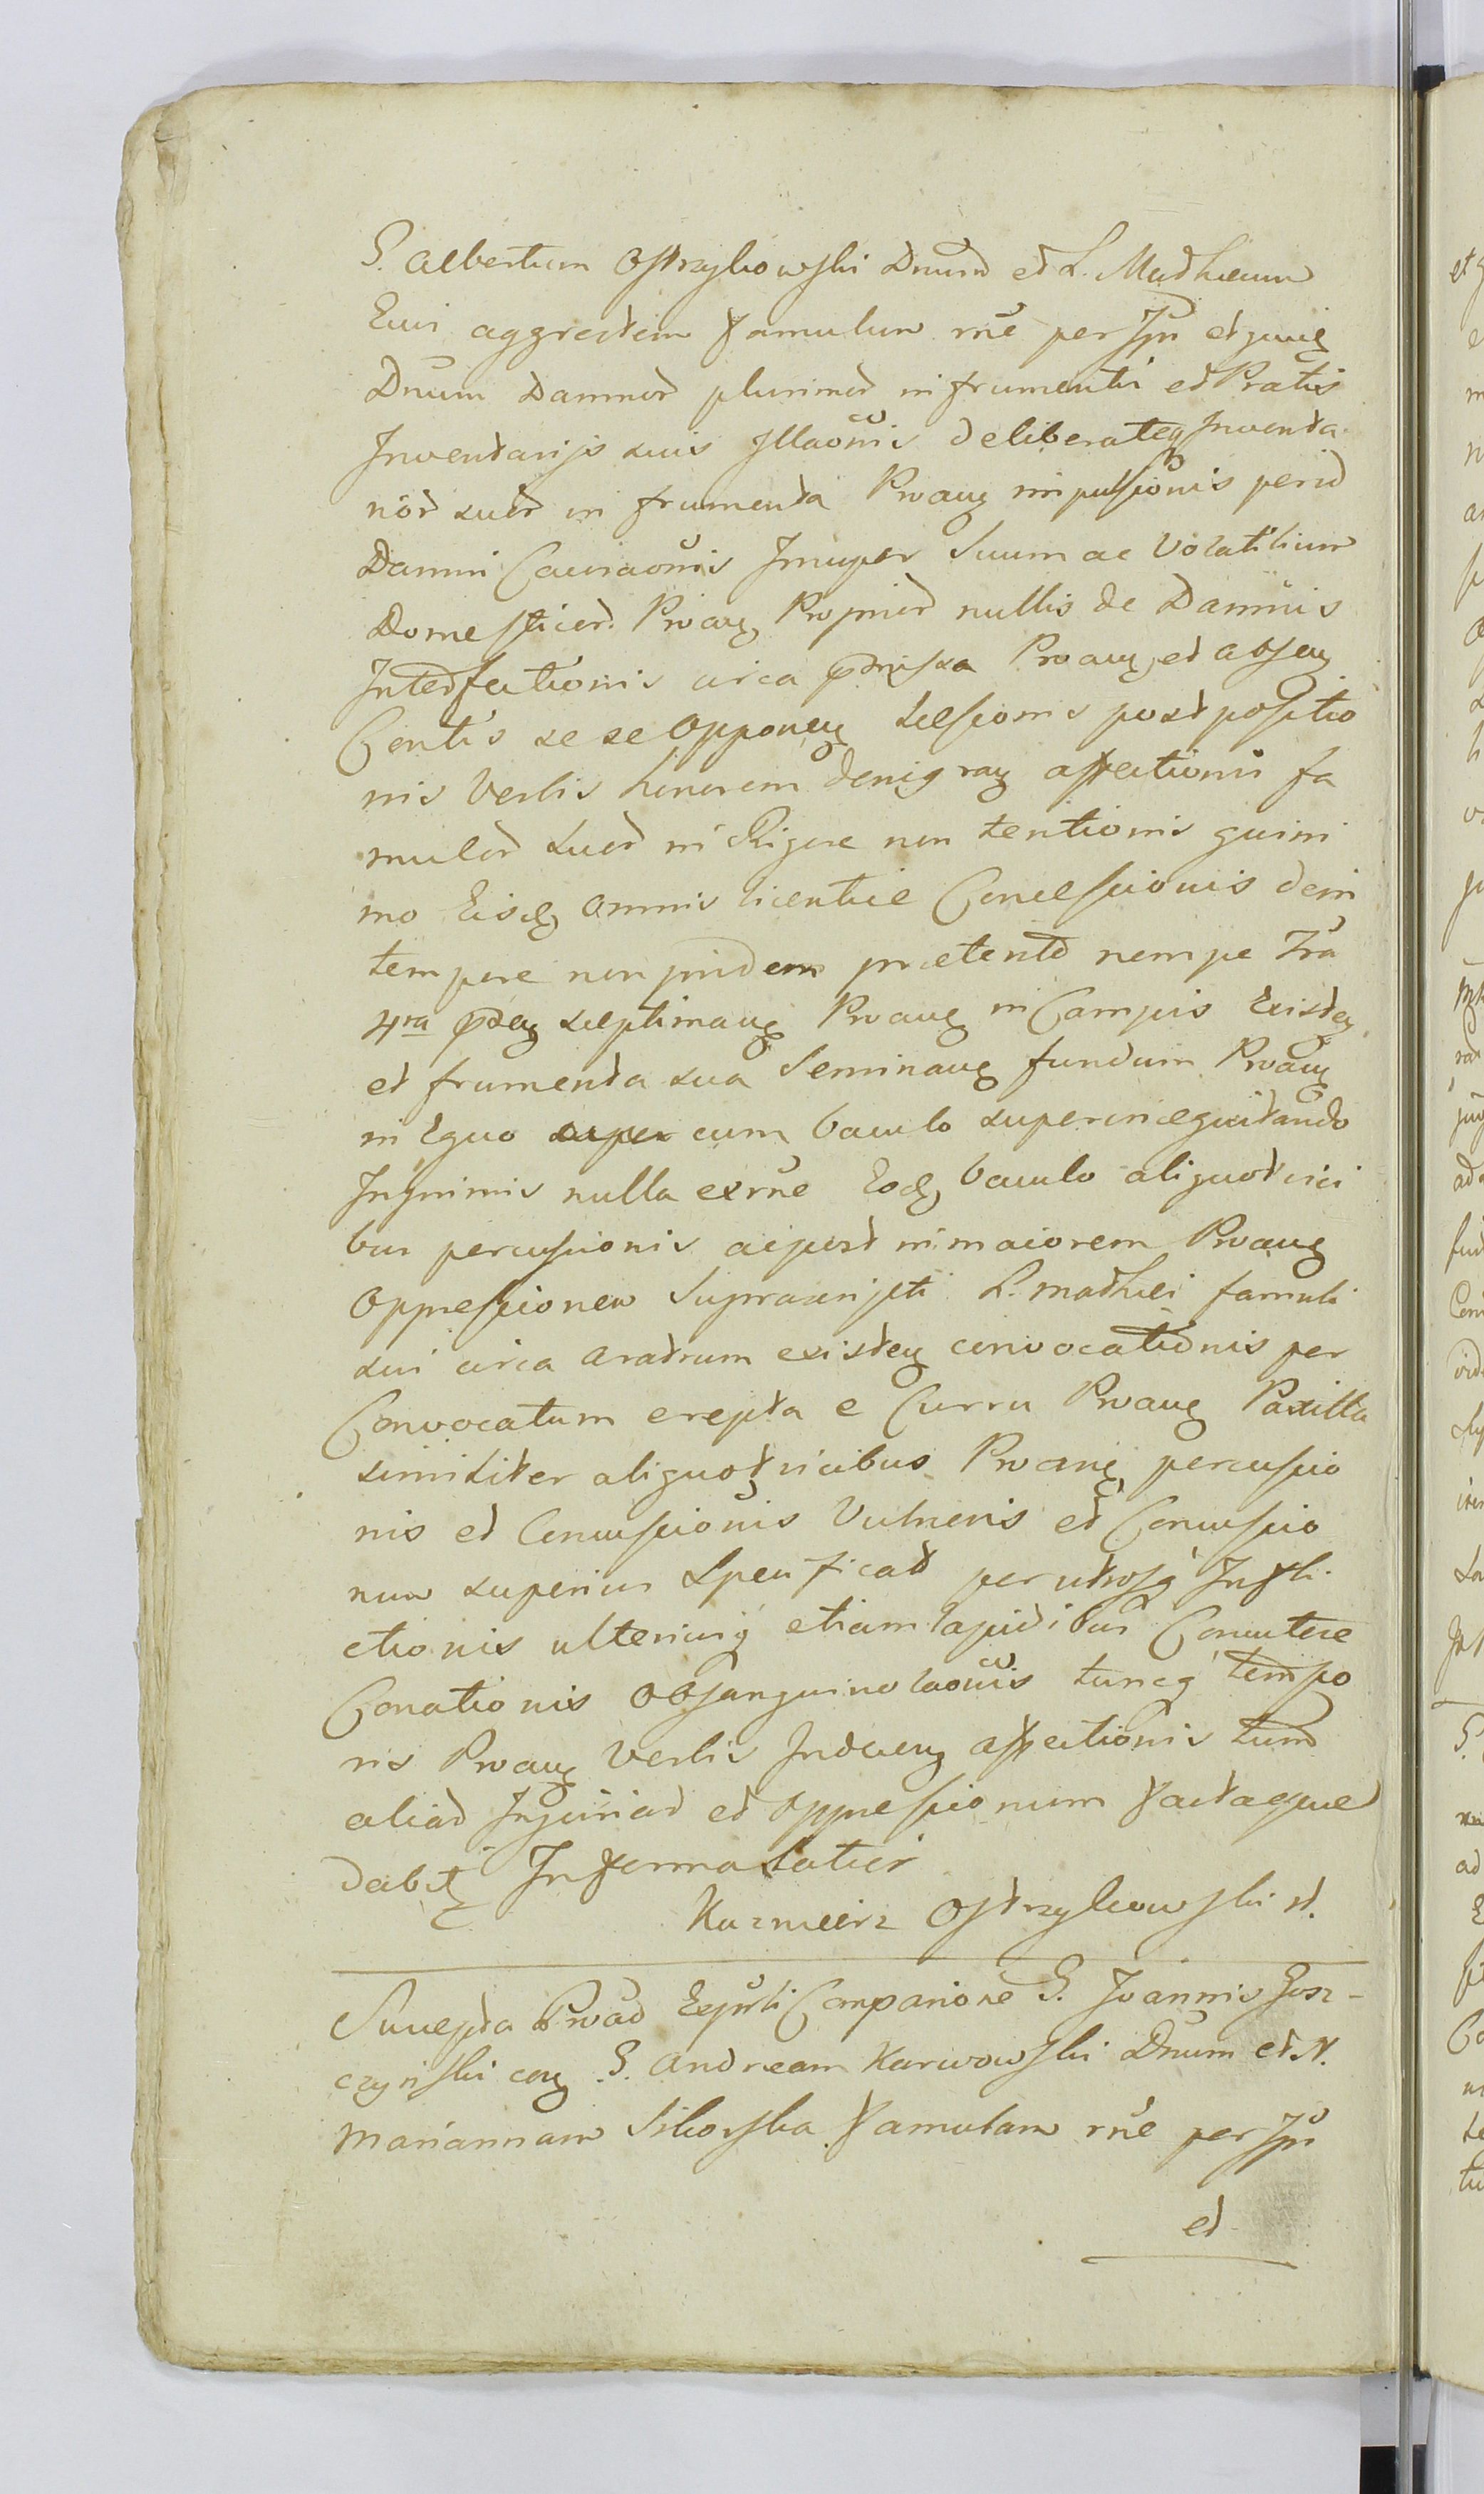 G. Albertum Ostrzykowski Dnum et L. Mathaeum
Eius aggrestem Famulum rne per Ipm et juve
Dnum Damnor plurimor in frumentis et Pratis
Inventarijs suis Illaonis deliberateq Inventa
rior suor in frumenta Proane impulsionis perid
Damni Causaonis Insuper Suum ac Volatilium
Domesticor. Proane Proprior nullis de Damnis
Interfectionis circa pdmissa Proane, et absen
Gentis se se opponen Laesionis postpositio
nis Verbis honorem denigran affectionis fa
mulor suor in Rigore non tentionis quini
mo Eisd omnis licentiae Concessionis dein
tempore non pridem praeterito nempe Fra
4ta pden septimane Proane in Campis Existen
et frumenta sua Seminane fundum Proane
in Equo super cum baculo superinaequitando
Inprimis nulla exrne Eod baculo aliquot vici
bus percussionis ac post in maiorem Proane
Oppressionem Suprascripti L. Mathei famuli
sui circa aratrum existen convocationis per
Convocatum erepta e Curru Proane Paxilla
similiter aliquot vicibus Proane percussio
nis et Concussionis Vulneris et Concussio
num superius Specificat per utrosq Infli
ctionis ulteriusq etiam lapidibus Concutere
Conationis Obsanguinolaonis tuncq tempo
ris Proane Verbis Indecen affectionis tum
aliar Injuriar et Oppressionum Factaque
dabit Informa Latior
Kazmierz Ostrzykowski st.
Suscepta Proad Exputi Companione G. Joannis Gosz-
czynski con G. Andream Karwowski Dnum et N.
Mariannam Sikorska Famulam rne per Ipm
et